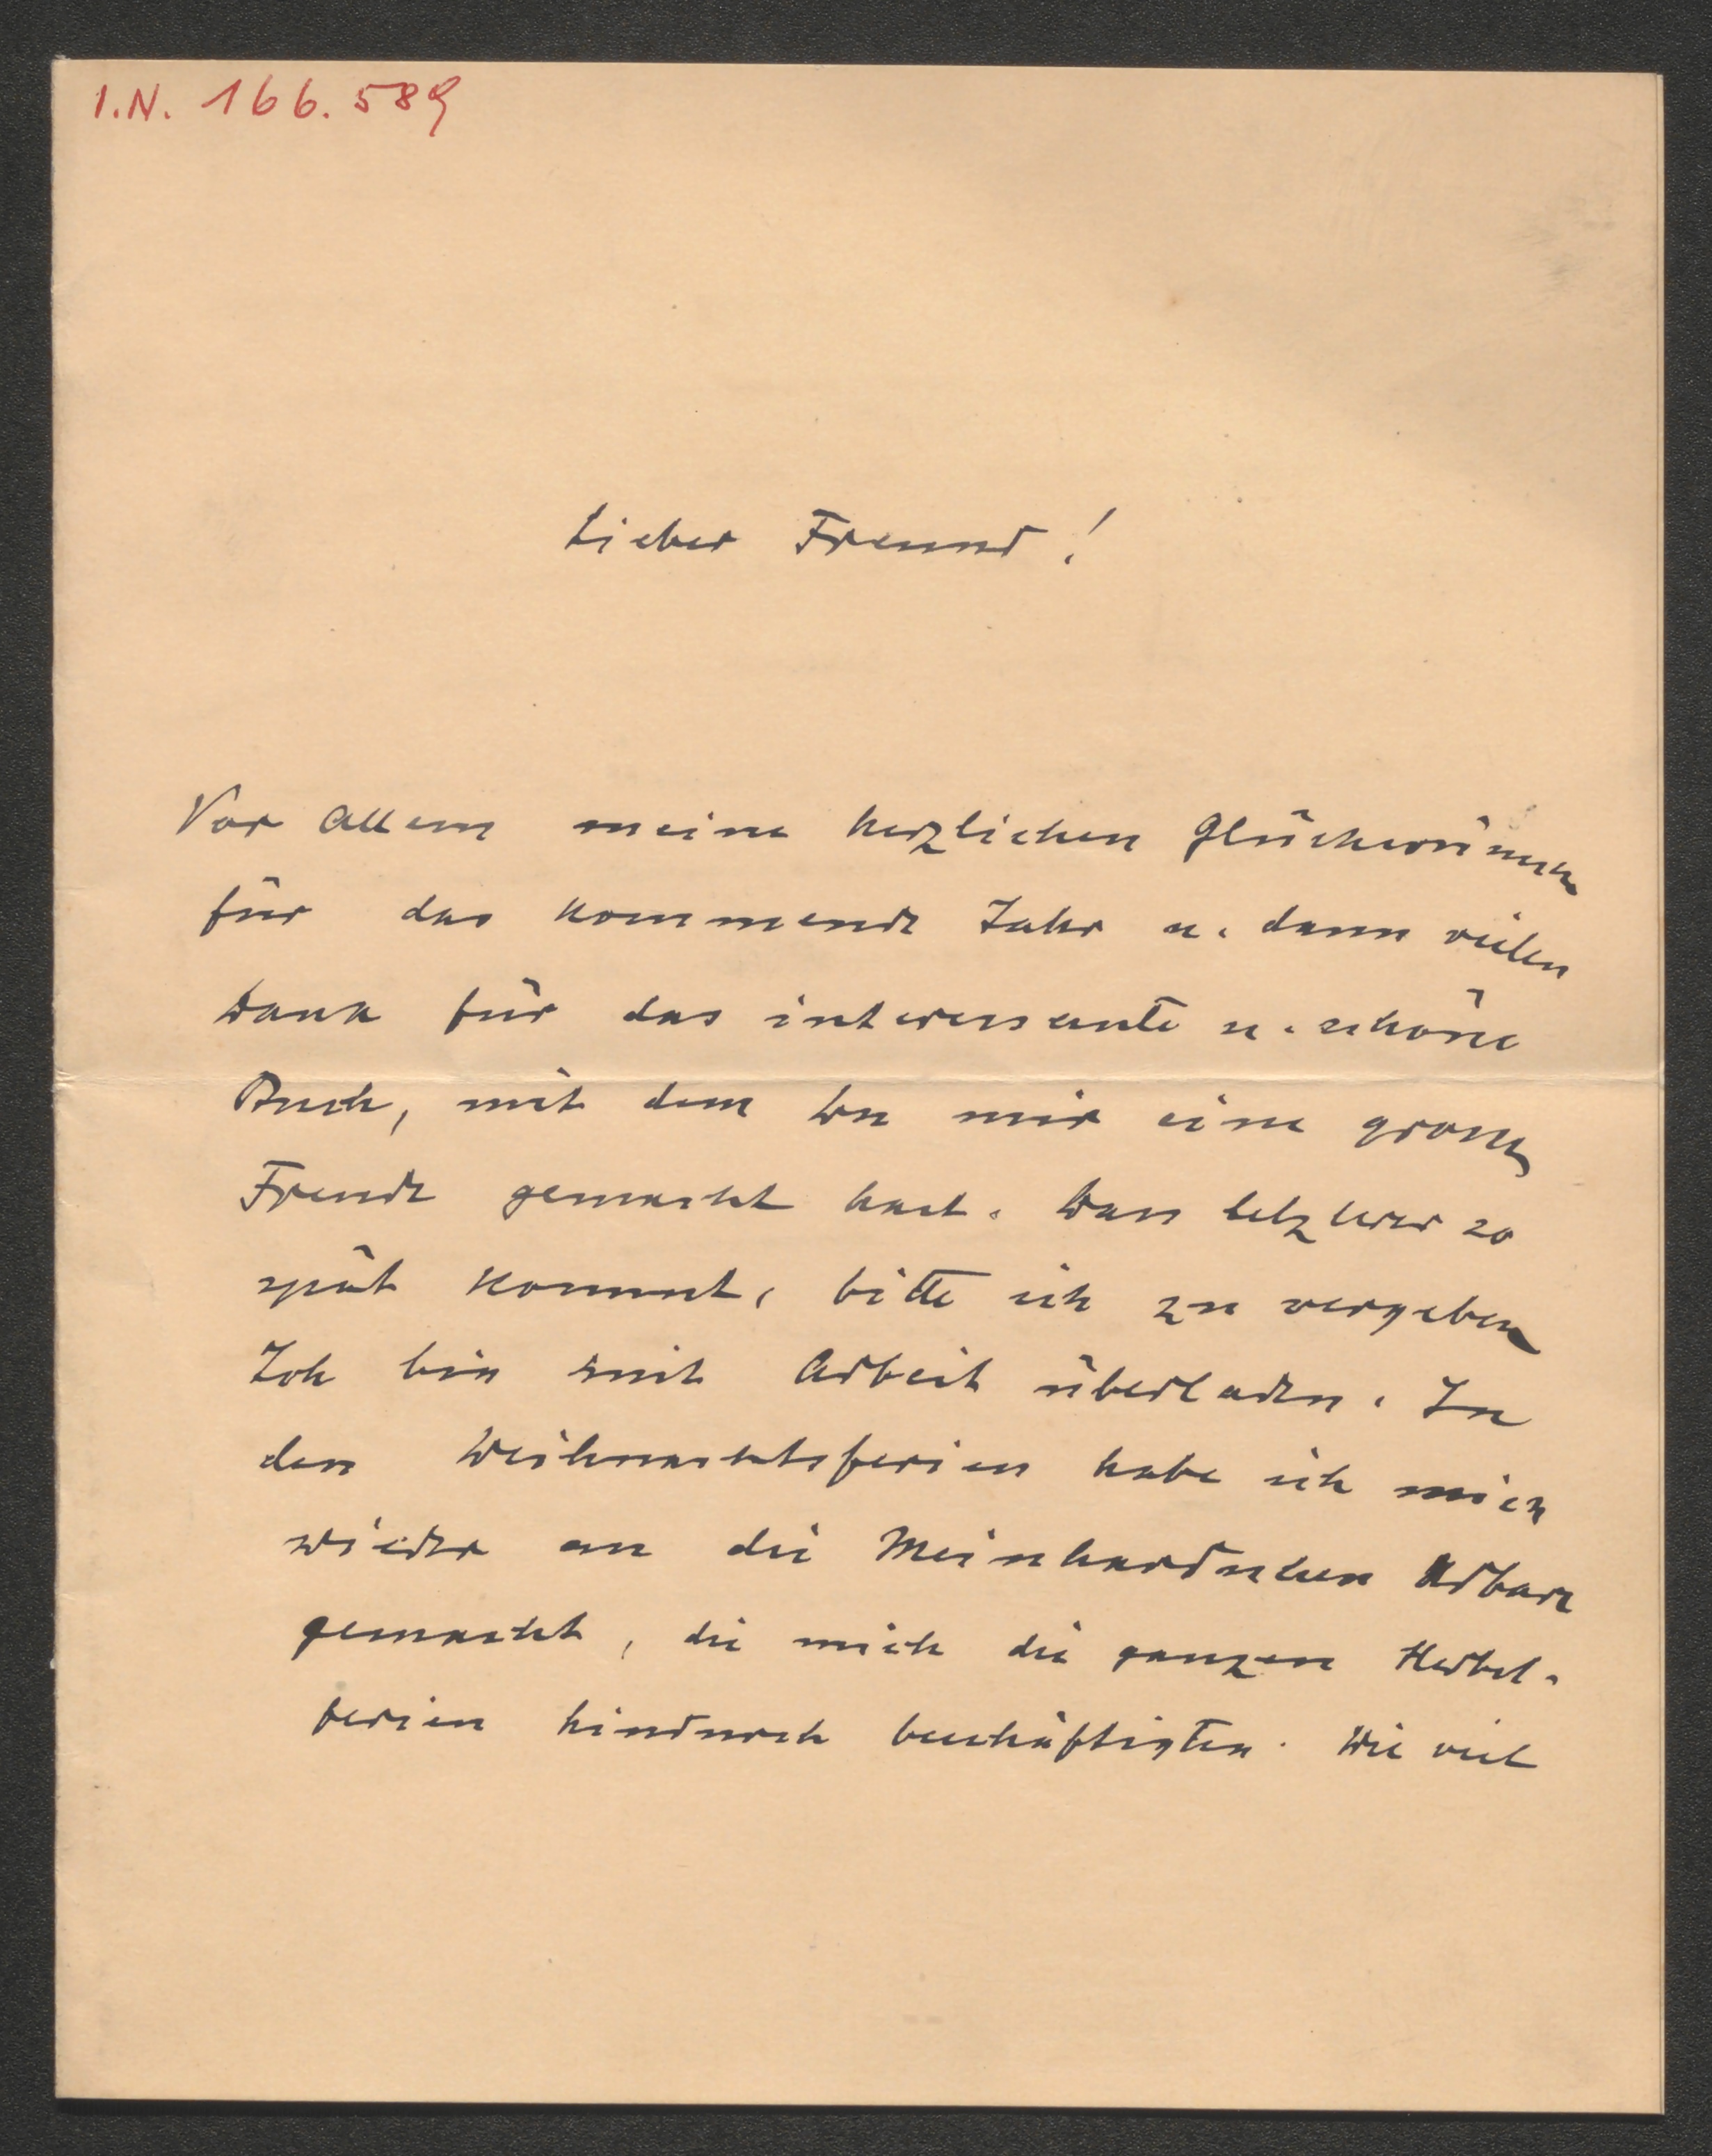 I.N. 166.589
Lieber Freund!
Vor allem meine herzlichen Glückwünsche
für das kommende Jahr u. dann vielen
Dank für das interessante u. schöne
Buch, mit dem Du mir eine grosse
Freude gemacht hast. Dass letzterer so
spät kommt, bitte ich zu vergeben
Ich bin mit Arbeit überladen. In
den Weihnachtsferien habe ich mich
wieder an die Meinhardschen Urbare
gemacht, die mich die ganzen Herbst-
ferien hindurch beschäftigten. Wie viel